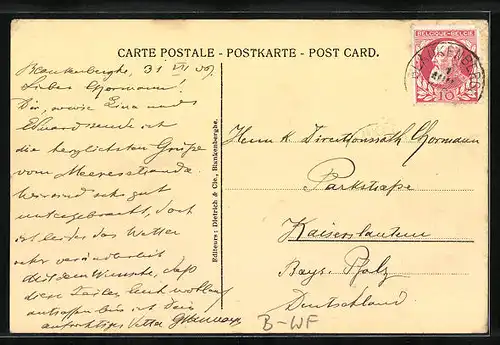 CARTE POSTALE - POSTKARTE - POST CARD.
BELGIQUE-BELGIË
BLANKENBERGHE
Blankenberghe, 31 VII 09.
Lieber Hermann!
Dir, sowie Lina und
Eduard sende ich
die herzlichsten Grüße
vom Meeresstrande.
Wir sind sehr gut
untergebracht, doch
ist leider das Wetter
sehr veränderlich
Mit dem Wunsche, daß
diese Zeilen Euch wohlauf
antreffen bin ich Dein
aufrichtiger Vetter
Editeurs: Dietrich & Cie., Blankenberghe.
Herrn k Direktionsrath Hermann
Parkstraße
Kaiserslautern
Bayr. Pfalz
Deutschland
B-WF